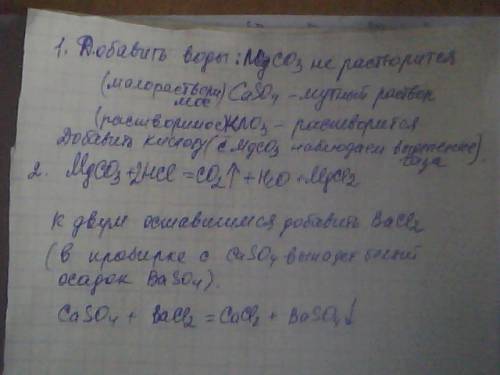 1. Добавить воды: MgCO₃ не растворится
(малораствори мое) CaSO₄ – мутный раствор
(растворимое) KNO₃ – растворится
Добавить кислоту (с MgCO₃ наблюдаем выделение газа)
2. MgCO₃ + 2HCl = CO₂↑ + H₂O + MgCl₂
К двум оставшимся добавить BaCl₂
(в пробирке с CaSO₄ выпадет белый
осадок BaSO₄).
CaSO₄ + BaCl₂ = CaCl₂ + BaSO₄↓